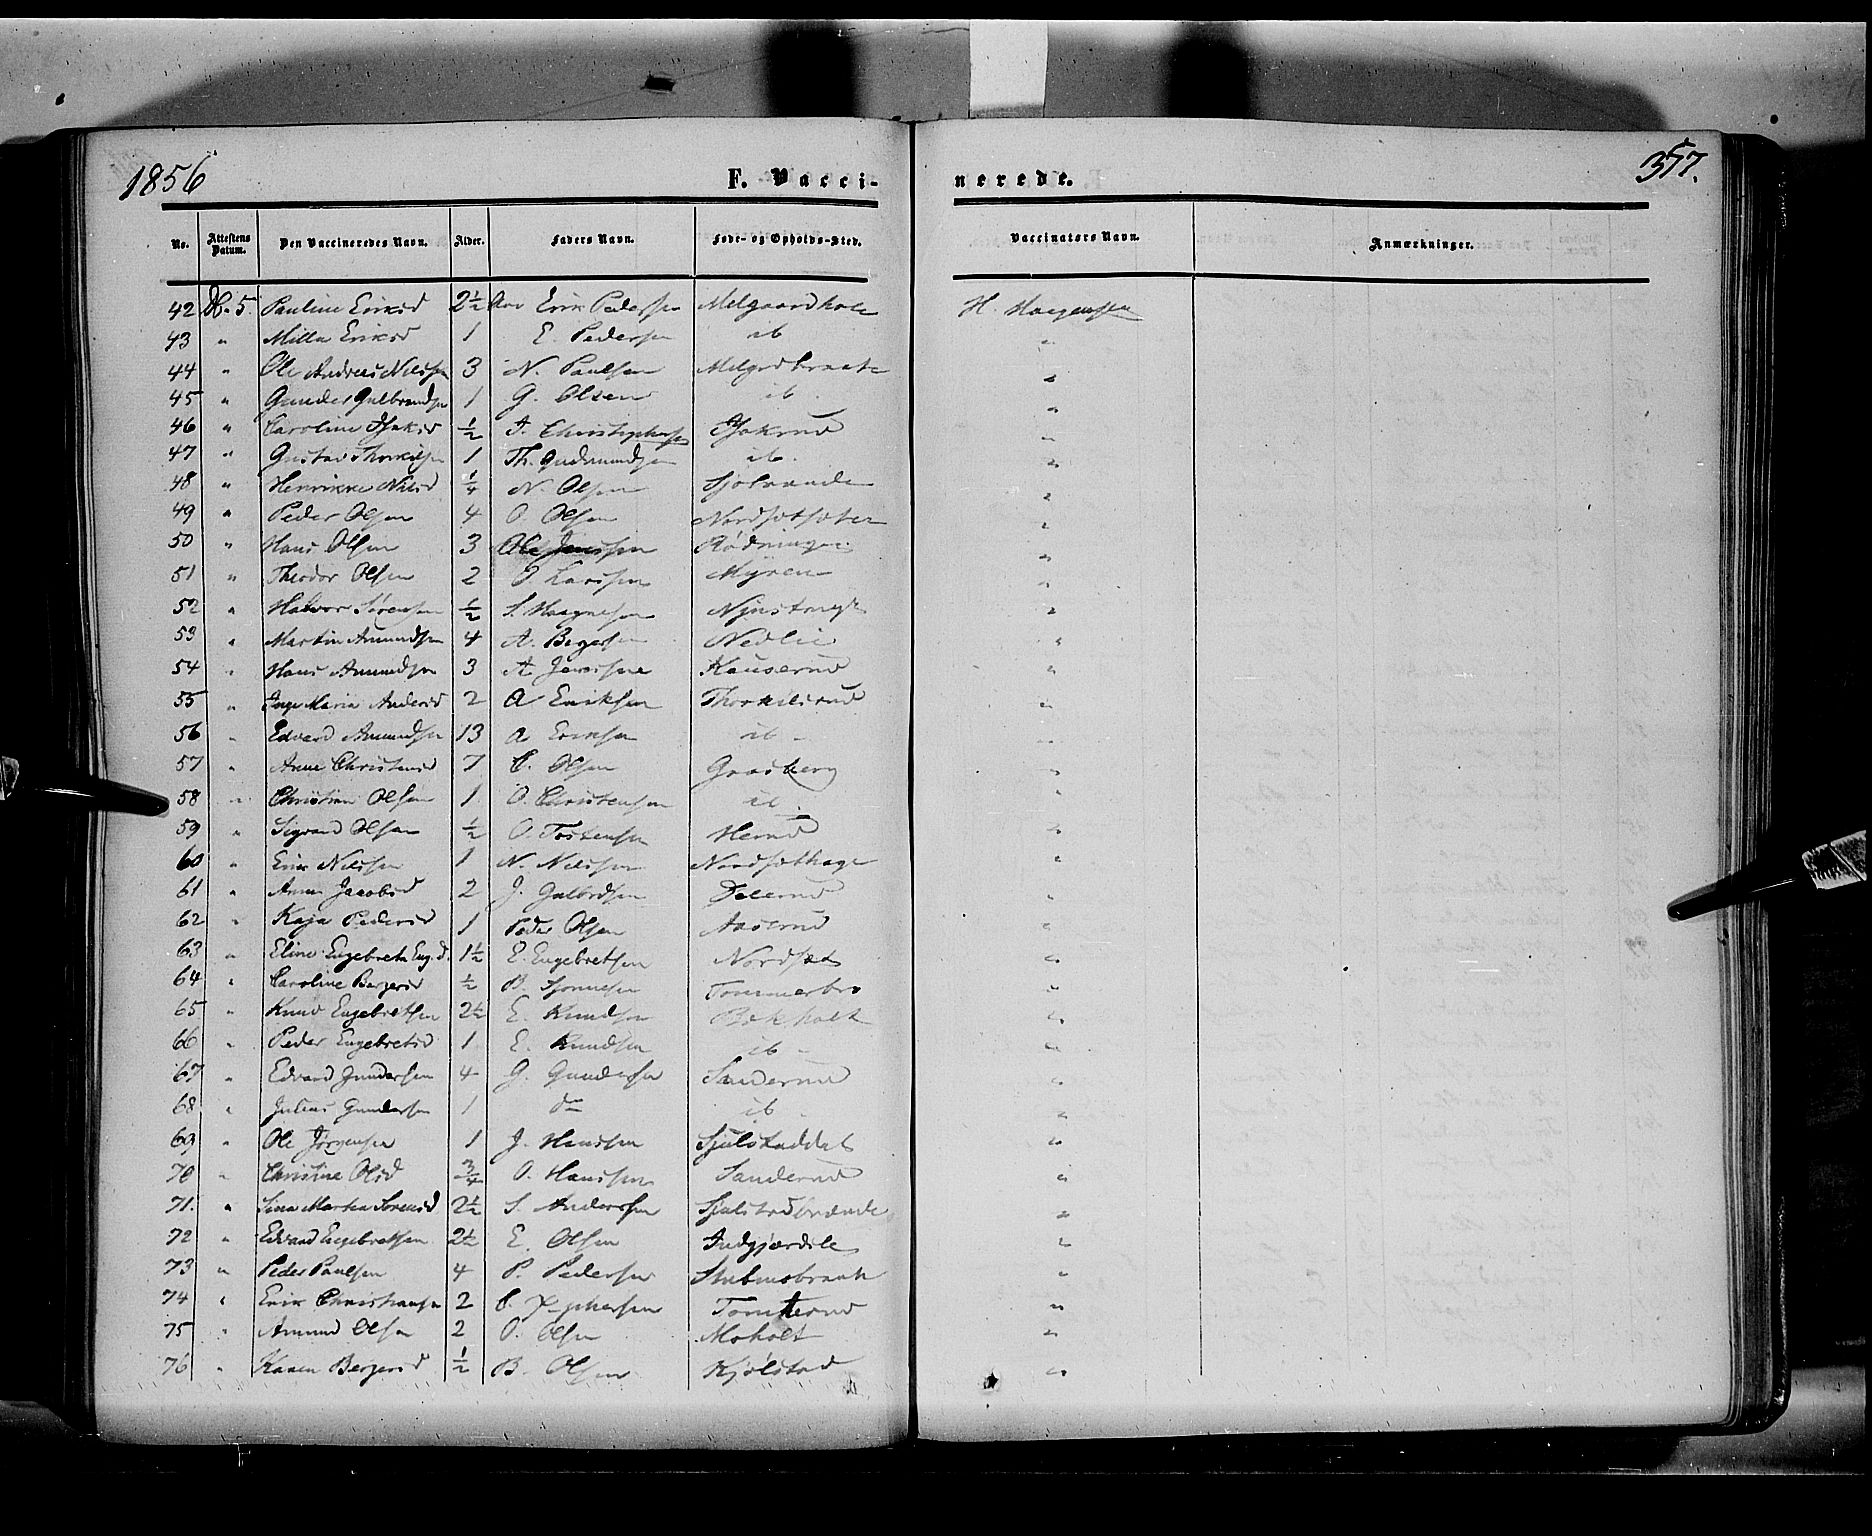 1856 F. Vacci- nerede. 377.
No. Attestens Datum. Den Vaccineredes Navn. Alder. Faders Navn. Føde- og Opholds-Sted. Vaccinators Navn. Anmærkninger.
42 5 Pauline Eriksd 2½ Erik Pederssen Melgaardhole H. Haagensen
43 " Milla Eriksd 1 E. Pedersen ib "
44 " Ole Andreas Nilssen 3 N. Paulsen Melgrdbraate "
45 " Gunder Gulbrandsen 1 G. Olsen ib "
46 " Caroline ½ Christophersen "
47 " Gustav Thorkilsen 1 Th. Gudmundsen ib. "
48 " Henrikke Nilsd ¼ N. Olsen "
49 " Peder Olsen 4 O. Olsen Nordsetseter "
50 " Hans Olsen 3 Ole Jenssen Rødningen "
51 " Theodor Olsen 2 O. Larssen Myren "
52 " Halvor Sørensen ½ S. Haagnesen "
53 " Martin Amundsen 4 A. Bergesen Nedlie "
54 " Hans Amundsen 3 A. Jenssen Kauserud "
55 " Inge Maria Andersd 2 A Eriksen Thorkilsrud "
56 " Edvard Amundsen 13 A Eriksen ib "
57 " Anne Christensd 7 C. Olsen Gaasberg "
58 " Christian Olsen 1 O. Christensen ib "
59 " Sigvard Olsen ½ O. Tostensen Herud "
60 " Erik Nilssen 1 N. Nilssen Nordsethage "
61 " Anne Jacobsd 2 J. Gulbrdsen Delerud "
62 " Kaja Pedersd 1 Peder Olsen Aaserud "
63 " Eline Engebreta Eng.d. 1½ E. Engebretsen Nordset "
64 " Caroline Bergersd ½ B. Tommerbro "
65 " Knud Engebretsen 2½ E. Knudsen Bekholt "
66 " Peder Engebretsd 1 E. Knudsen ib "
67 " Edvard Gundersen 4 G. Gundersen Sanderud "
68 " Julius Gundersen 1 do ib "
69 " Ole Jørgensen 1 J. Hanssen Sjulstaddal "
70 " Christine Olsd ¾ O. Hanssen Sanderud "
71. " Sina Martea Sørensd 2½ S. Anderssen Sjulstadbraate "
72 " Edvard Engebretsen 2½ E. Olsen Indgjærdele "
73 " Peder Paulsen 4 P. Pedersen "
74 " Erik Christiansen 2 C. Tomterud "
75 " Amund Olsen 2 O. Olsen Moholt "
76 " Karen Bergersd ½ B. Olsen Kjølstad "